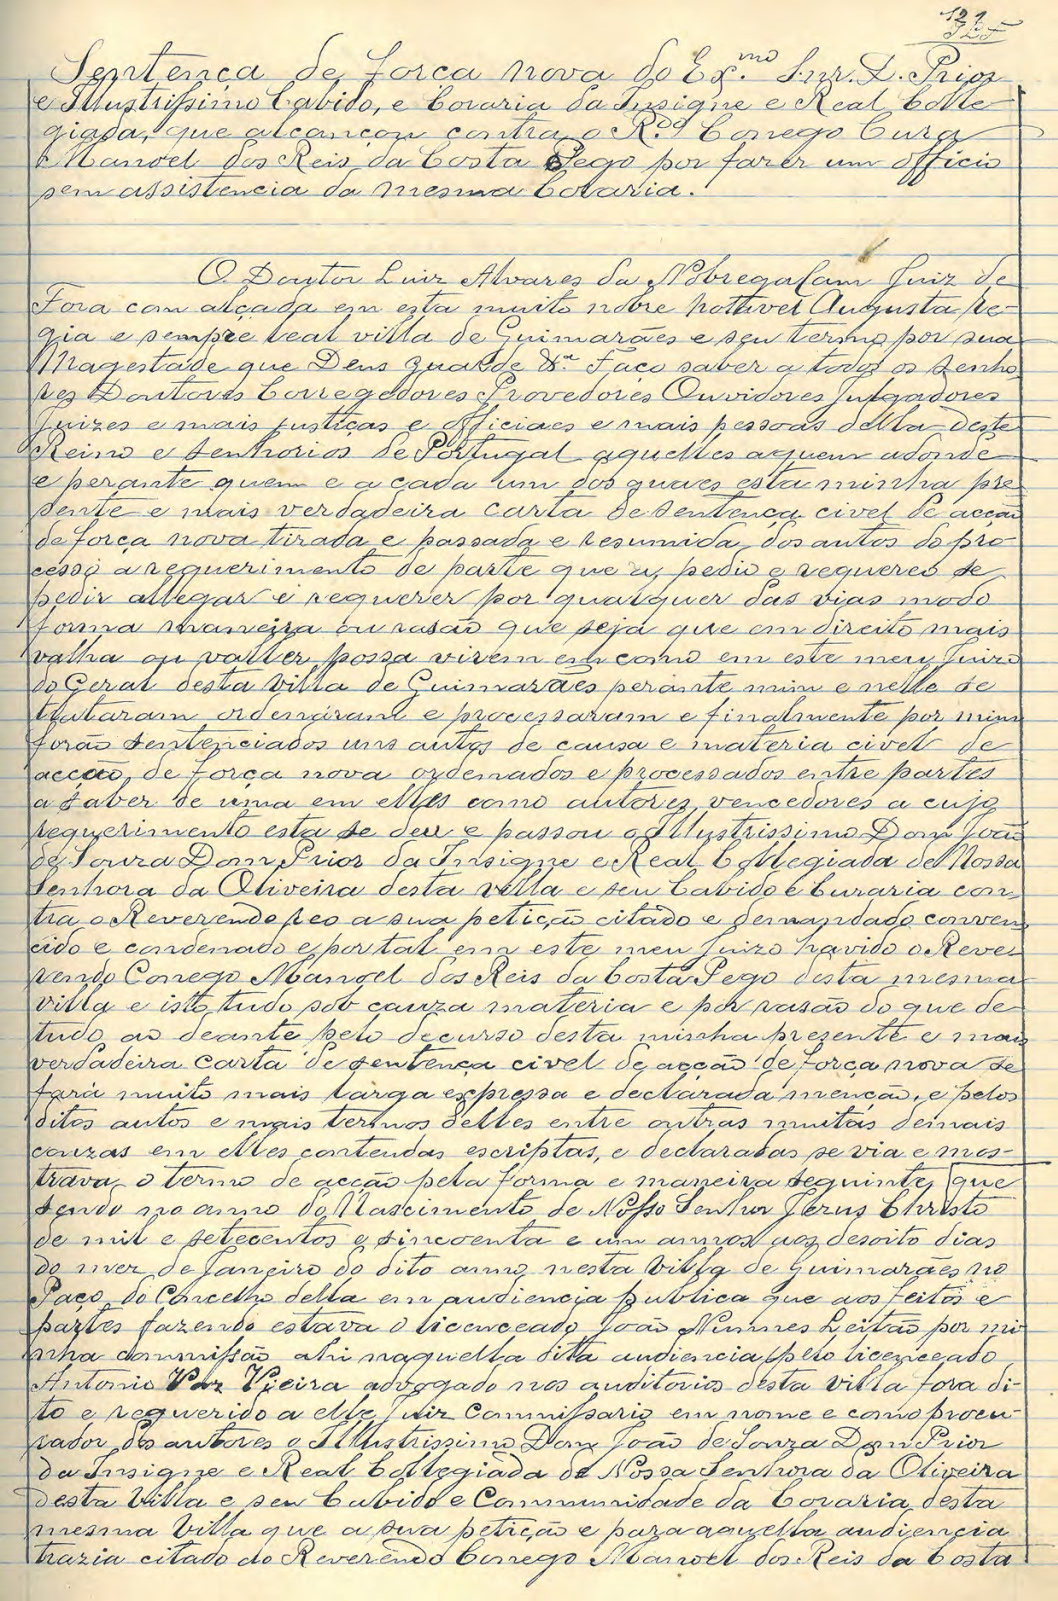 121
Sentença de força nova do Ex.mo Snr. D. Prior
e Illustrissimo Cabido, e Coraria da Insigne e Real Colle-
giada, que alcançou contra o R.do Conego Cura
Manoel dos Reis da Costa Pego por fazer um officio
sem assistencia da mesma Coraria.
O Doutor Luiz Alvares da Nobrega Cam Juiz de
Fora com alçada em esta muito nobre notavel Augusta re-
gia e sempre leal villa de Guimarães e seu termo por sua
Magestade que Deus guarde &.a Faço saber a todos os Senho
res Doutores Corregedores Provedores Ouvidores Julgadores
Juizes e mais justiças e officiaes e mais pessoas della deste
Reino e Senhorios de Portugal aquelles aquem adonde
e perante quem e a cada um dos quaes esta minha pre
sente e mais verdadeira carta de Sentença civel de acção
de força nova tirada e passada e resumida dos autos do pro-
cesso a requerimento de parte que a pedio e requereo se
pedir allegar e requerer por qualquer das vias modo
forma maneira ou rasão que seja que em direito mais
valha ou valler possa virem em como em este meu Juizo
do Geral desta Villa de Guimarães perante mim e nelle se
trataram ordenaram e processaram e finalmente por mim
forão Sentenciados uns autos de causa e materia civel de
acção de força nova ordenados e processados entre partes
a saber de uma em elles como autores vencedores a cujo
requerimento esta se deu e passou o Illustrissimo Dom João
de Souza Dom Prior da Insigne e Real Collegiada de Nossa
Senhora da Oliveira desta villa e seu Cabido e Curaria con-
tra o Reverendo reo a sua petição citado e demandado conven
cido e condenado e por tal em este meu Juizo havido o Reve-
rendo Conego Manoel dos Reis da Costa Pego desta mesma
villa e isto tudo sob cauza materia e por rasão do que de
tudo ao deante pelo decurso desta minha presente e mais
verdadeira carta de sentença civel de acção de força nova se
fará muito mais larga expressa e declarada menção, e pelos
ditos autos e mais termos delles entre outras muitas demais
couzas em elles contendas escriptas, e declaradas se via e mos-
trava o termo de acção pela forma e maneira seguinte que
sendo no anno do Nascimento de Nosso Senhor Jezus Christo
de mil e setecentos e sincoenta e um annos aos desoito dias
do mez de Janeiro do dito anno nesta Villa de Guimarães no
Paço do Concelho della em audiencia publica que aos feitos e
partes fazendo estava o licenceado João Nunnes Leitão por mi
nha commissão ahi naquella dita audiencia pelo licenceado
Antonio Vaz Vieira advogado nos auditorios desta villa fora di-
to e requerido a elle Juiz Commissario em nome e como procu-
rador dos autores o Illustrissimo Dom João de Souza Dom Prior
da Insigne e Real Collegiada de Nossa Senhora da Oliveira
desta Villa e seu Cabido e Communidade da Coraria desta
mesma Villa que a sua petição e para aquella audiencia
trazia citado ao Reverendo Conego Manoel dos Reis da Costa